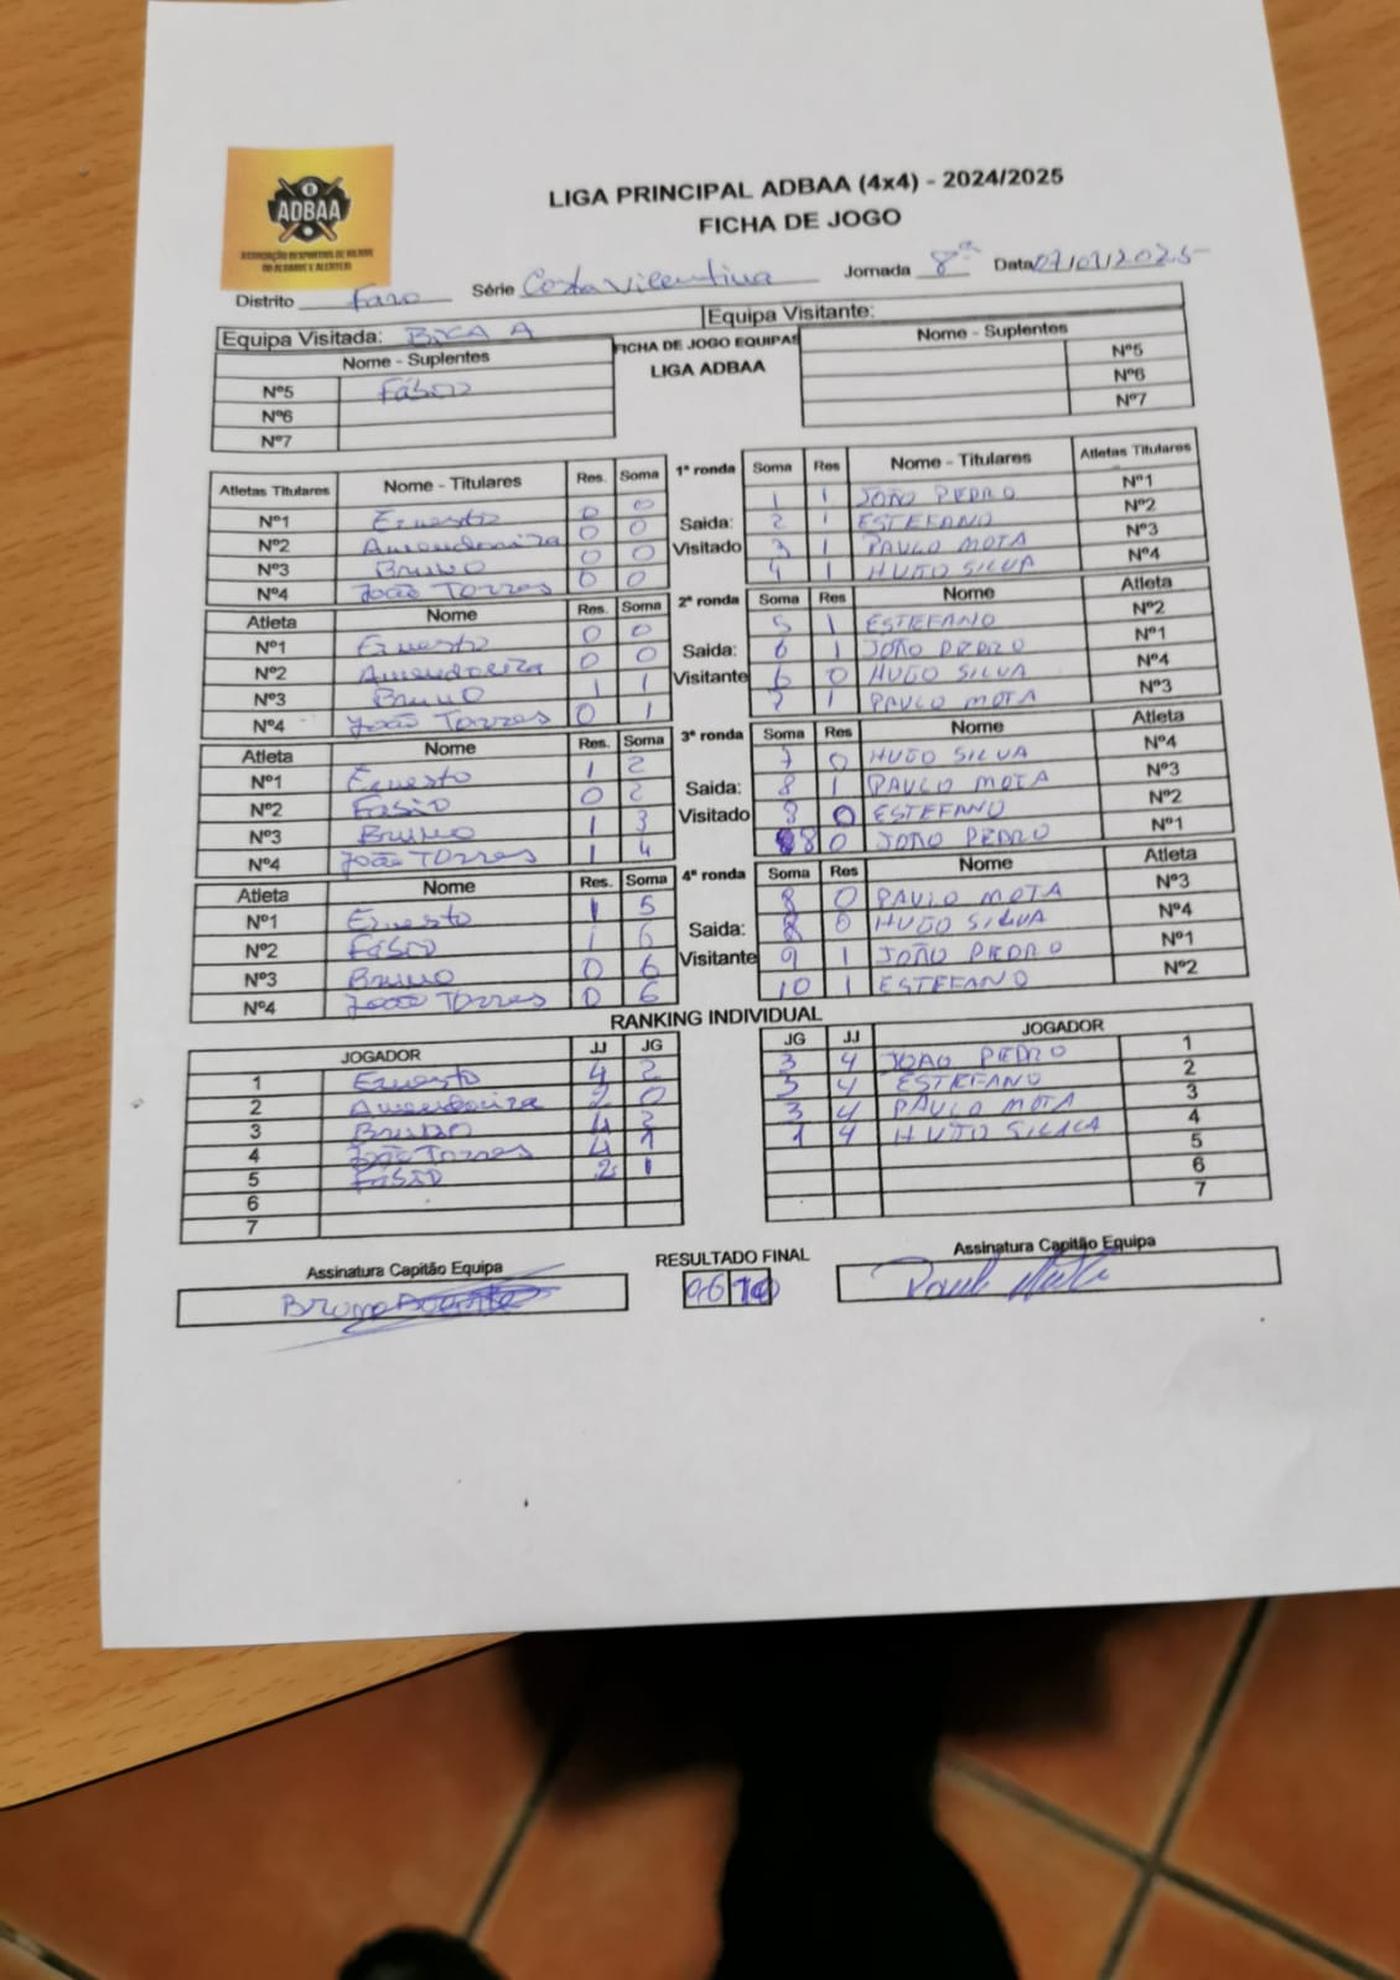 ADBAA
ASSOCIAÇÃO DESPORTIVA DE BILHAR
DO ALGARVE E ALENTEJO
LIGA PRINCIPAL ADBAA (4x4) - 2024/2025
FICHA DE JOGO
Distrito Faro Série Costa Vicentina Jornada 8ª Data 07/01/2025
Equipa Visitada: BICA A Equipa Visitante:
Nome - Suplentes FICHA DE JOGO EQUIPAS Nome - Suplentes
LIGA ADBAA
Nº5 Fábio Nº5
Nº6 Nº6
Nº7 Nº7
Atletas Titulares Nome - Titulares Res. Soma 1ª ronda Soma Res Nome - Titulares Atletas Titulares
Nº1 Ernesto 0 0 1 1 JOÃO PEDRO Nº1
Nº2 Amendoeira 0 0 Saida: 2 1 ESTEFANO Nº2
Nº3 Bruno 0 0 Visitado 3 1 PAULO MOTA Nº3
Nº4 João Torres 0 0 4 1 HUGO SILVA Nº4
Atleta Nome Res. Soma 2ª ronda Soma Res Nome Atleta
Nº1 Ernesto 0 0 5 1 ESTEFANO Nº2
Nº2 Amendoeira 0 0 Saida: 6 1 JOÃO PEDRO Nº1
Nº3 Bruno 1 1 Visitante 6 0 HUGO SILVA Nº4
Nº4 João Torres 0 1 7 1 PAULO MOTA Nº3
Atleta Nome Res. Soma 3ª ronda Soma Res Nome Atleta
Nº1 Ernesto 1 2 7 0 HUGO SILVA Nº4
Nº2 Fábio 0 2 Saida: 8 1 PAULO MOTA Nº3
Nº3 Bruno 1 3 Visitado 8 0 ESTEFANO Nº2
Nº4 João Torres 1 4 8 0 JOÃO PEDRO Nº1
Atleta Nome Res. Soma 4ª ronda Soma Res Nome Atleta
Nº1 Ernesto 1 5 8 0 PAULO MOTA Nº3
Nº2 Fábio 1 6 Saida: 8 0 HUGO SILVA Nº4
Nº3 Bruno 0 6 Visitante 9 1 JOÃO PEDRO Nº1
Nº4 João Torres 0 6 10 1 ESTEFANO Nº2
RANKING INDIVIDUAL
JOGADOR JJ JG JG JJ JOGADOR
1 Ernesto 4 2 3 4 JOAO PEDRO 1
2 Amendoeira 2 0 3 4 ESTEFANO 2
3 Bruno 4 2 3 4 PAULO MOTA 3
4 João Torres 4 1 1 4 HUGO SILVA 4
5 Fábio 2 1 5
6 6
7 7
Assinatura Capitão Equipa RESULTADO FINAL Assinatura Capitão Equipa
Bruno 06 10 Paulo Mota